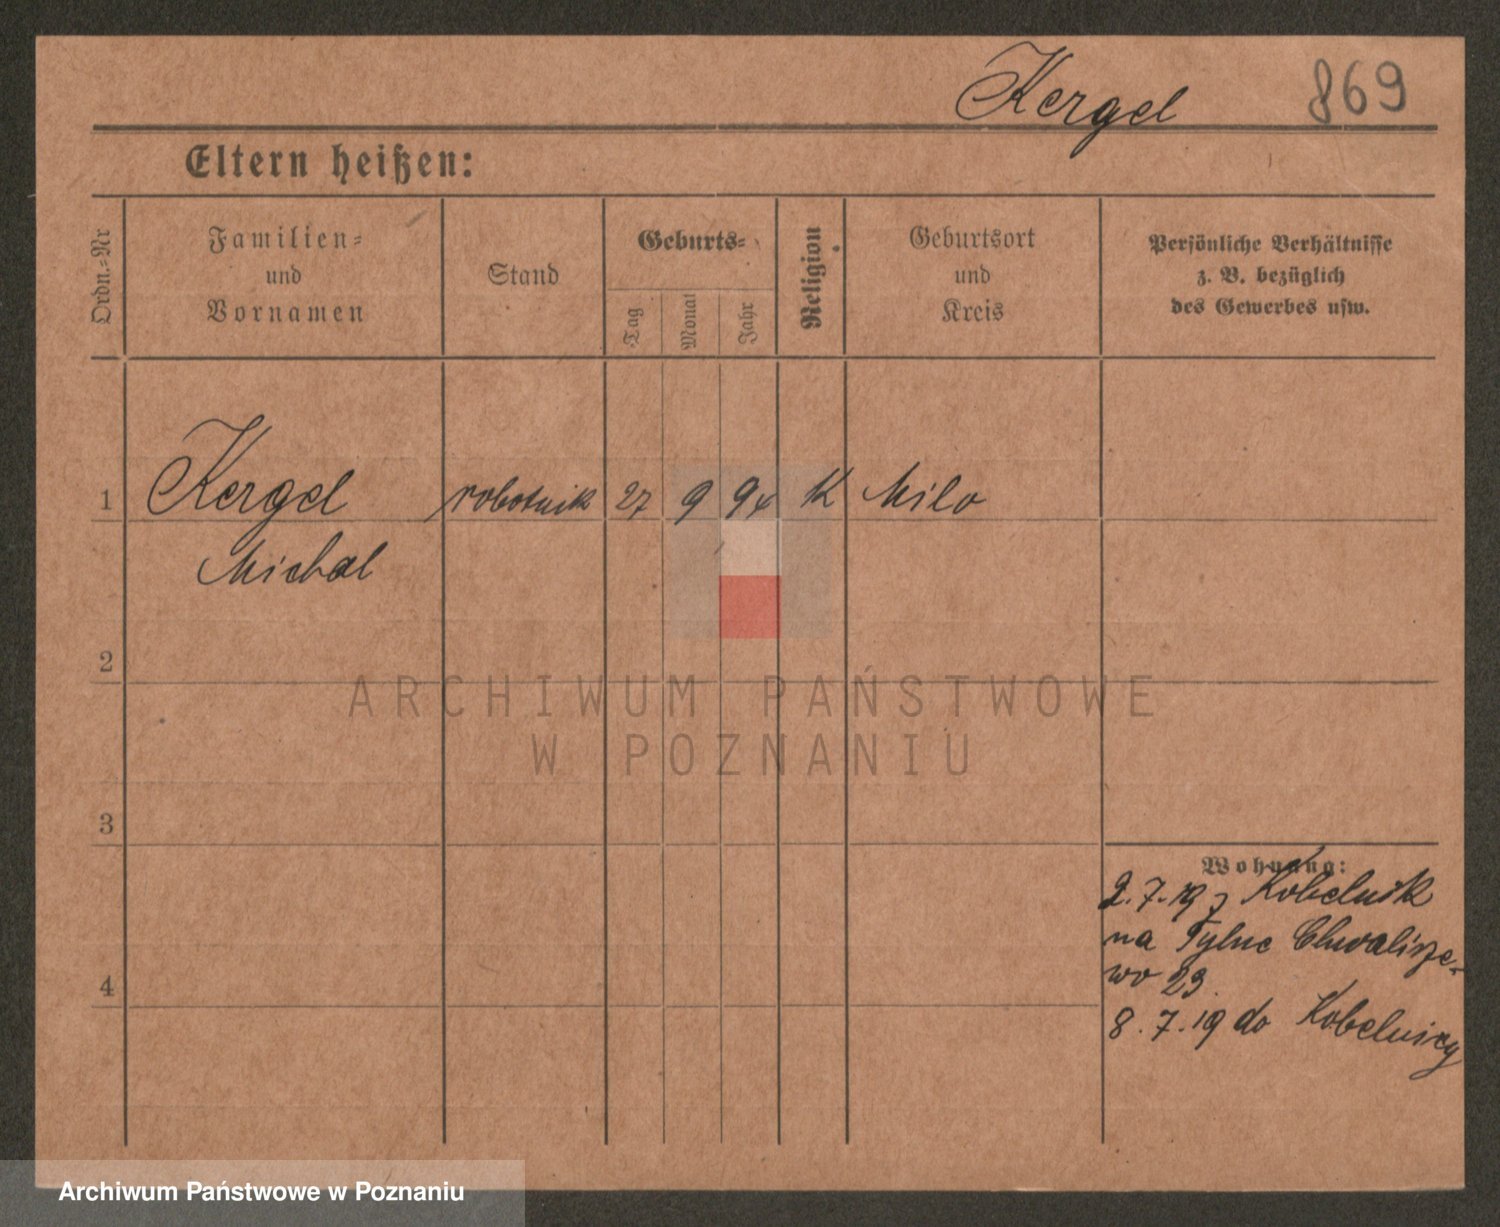 Kergel 869
Eltern heißen:
Ordn.-Nr
Familien=
und
Vornamen
Stand
Geburts=
Tag
Monat
Jahr
Religion
Geburtsort
und
Kreis
Persönliche Verhältnisse
z. B. bezüglich
des Gewerbes usw.
1 Kergel robotnik 27 9 K Milo
Michal
2
3
4
Wohnung:
2.7.19 z Kobelnik
na Tylne Chwalisze-
wo 23.
8.7.19 do Kobelnicy
ARCHIWUM PAŃSTWOWE
W POZNANIU
Archiwum Państwowe w Poznaniu